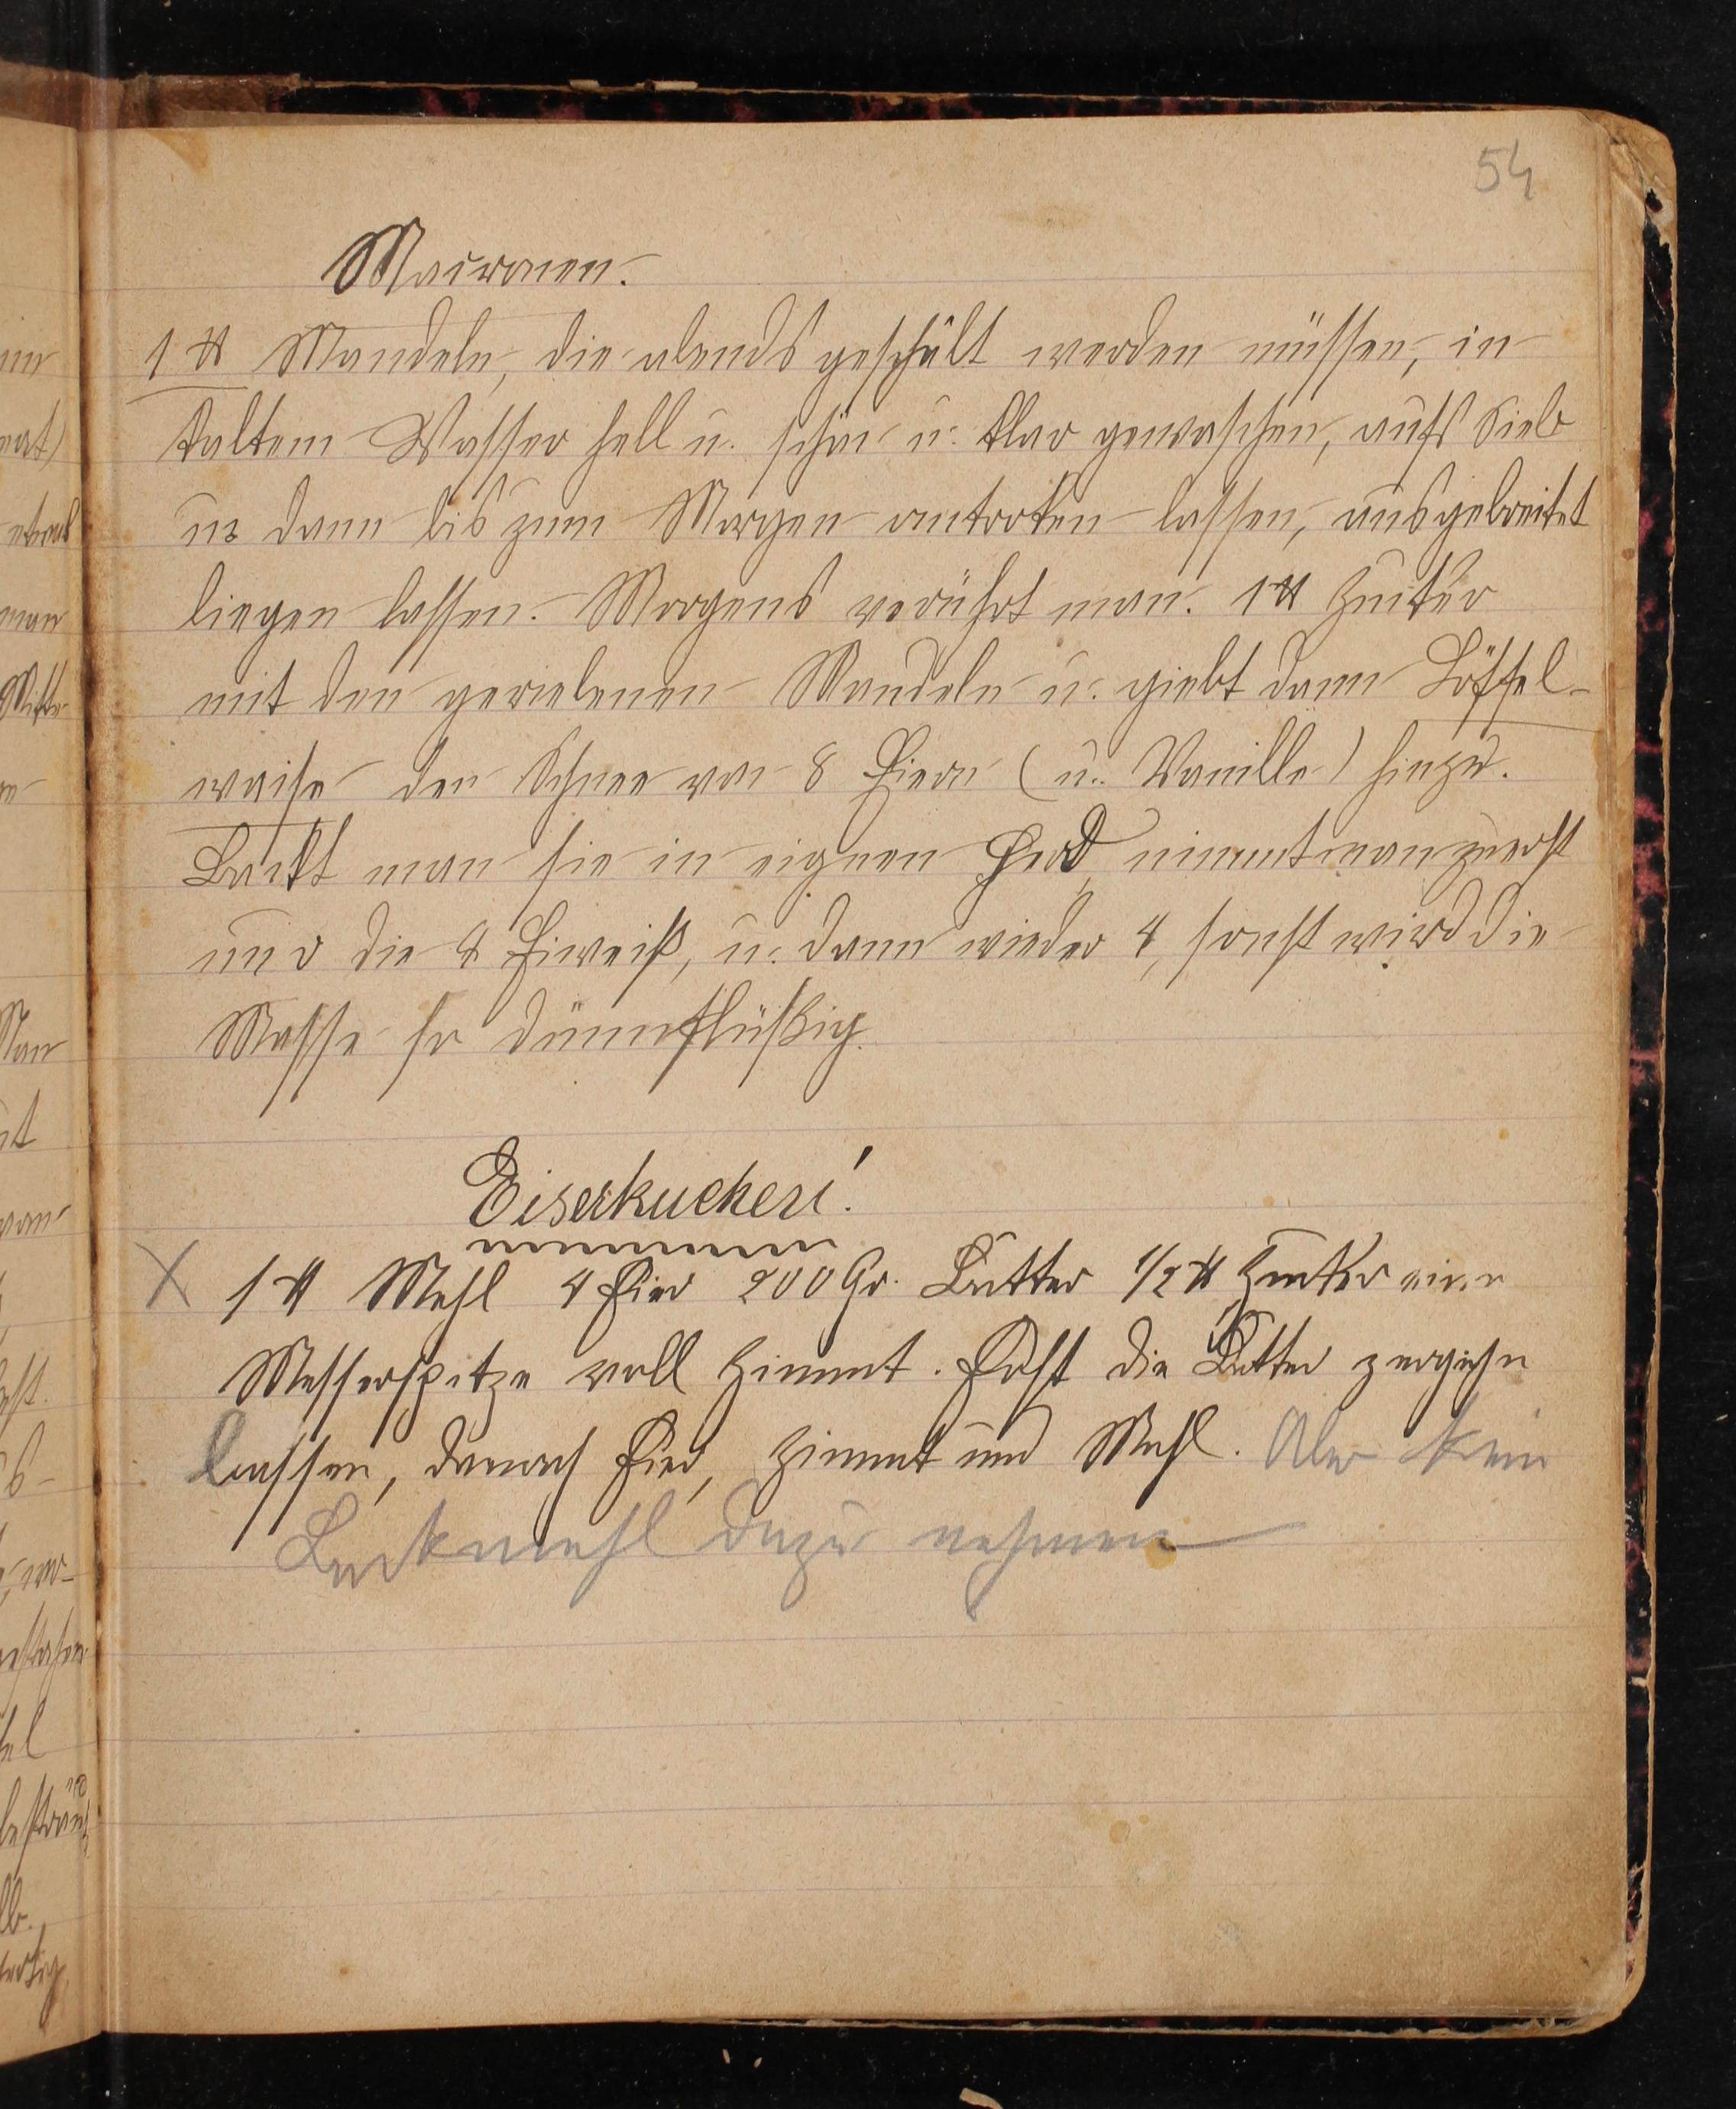 54
Macronen.
1 ℔ Mandeln, die abends geschält werden müssen, in
kaltem Wasser hell u. schön u. klar gewaschen, aufs Sieb
u. dann bis zum Morgen antroknen lassen, ausgebreitet
liegen lassen. Morgens verührt man 1 ℔ Zucker
mit den geriebenen Mandeln u. giebt dann Löffel-
weise den Schnee von 8 Eiern (u. Vanille) hinzu.
Backt man sie in eignen Herd, nimmt man zuerst
nur die 4 Eiweiß, u. dann wieder 4, sonst wird die
Masse so dünnflüßig.
Eiserkuchen!
X 1 ℔ Mehl 4 Eier 200 Gr. Butter 1/2 ℔ Zucker eine
Messerspitze voll Zimmt. Erst die Butter zergehn
lassen, danach Eier, Zimmt und Mehl. Aber kein
Backmehl dazu nehmen